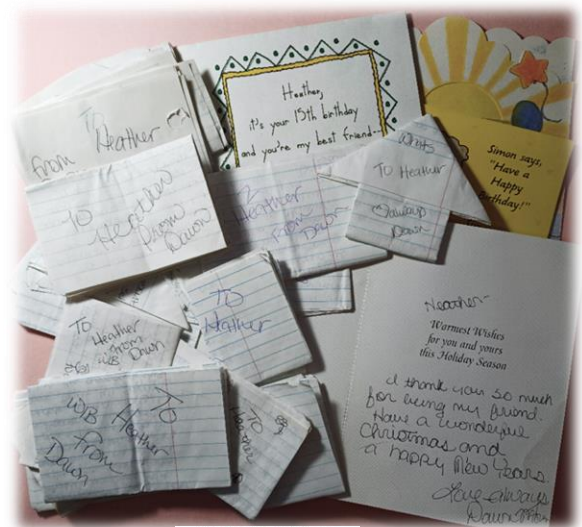 To
Heather
From
Heather,
it's your 15th birthday
and you're my best friend--
Simon says,
"Have a
Happy
Birthday!"
To Heather
Always
Dawn
To
Heather
From
Dawn
Heather
From
Dawn
To
Heather
To
Heather
From
WB Dawn
To
Heather
WB
From
Dawn
To
Heather
Heather-
Warmest Wishes
for you and yours
this Holiday Season
I thank you so much
for being my friend.
Have a wonderful
Christmas and
a happy New Years
Love always
Dawn